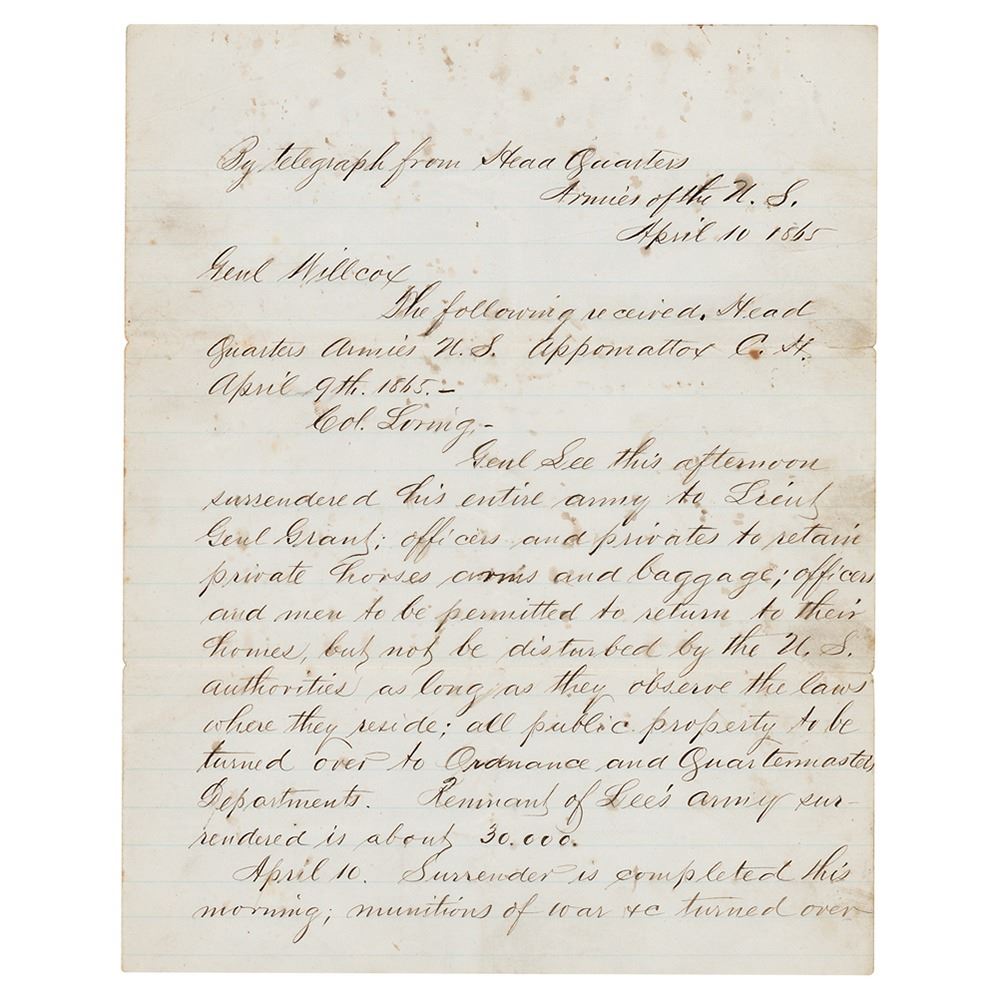 By telegraph from Head Quarters
Armies of the U. S.
April 10 1865
Genl Willcox
The following received. Head
Quarters Armies U. S. Appomattox C. H.
April 9th. 1865. –
Col. Loring, –
Genl Lee this afternoon
surrendered his entire army to Lieut
Genl Grant; officers and privates to retain
private horses arms and baggage; officers
and men to be permitted to return to their
homes, but not be disturbed by the U. S.
authorities as long as they observe the laws
where they reside; all public property to be
turned over to Ordnance and Quartermasters
Departments. Remnant of Lee's army sur-
rendered is about 30.000.
April 10. Surrender is completed this
morning; munitions of war &c turned over